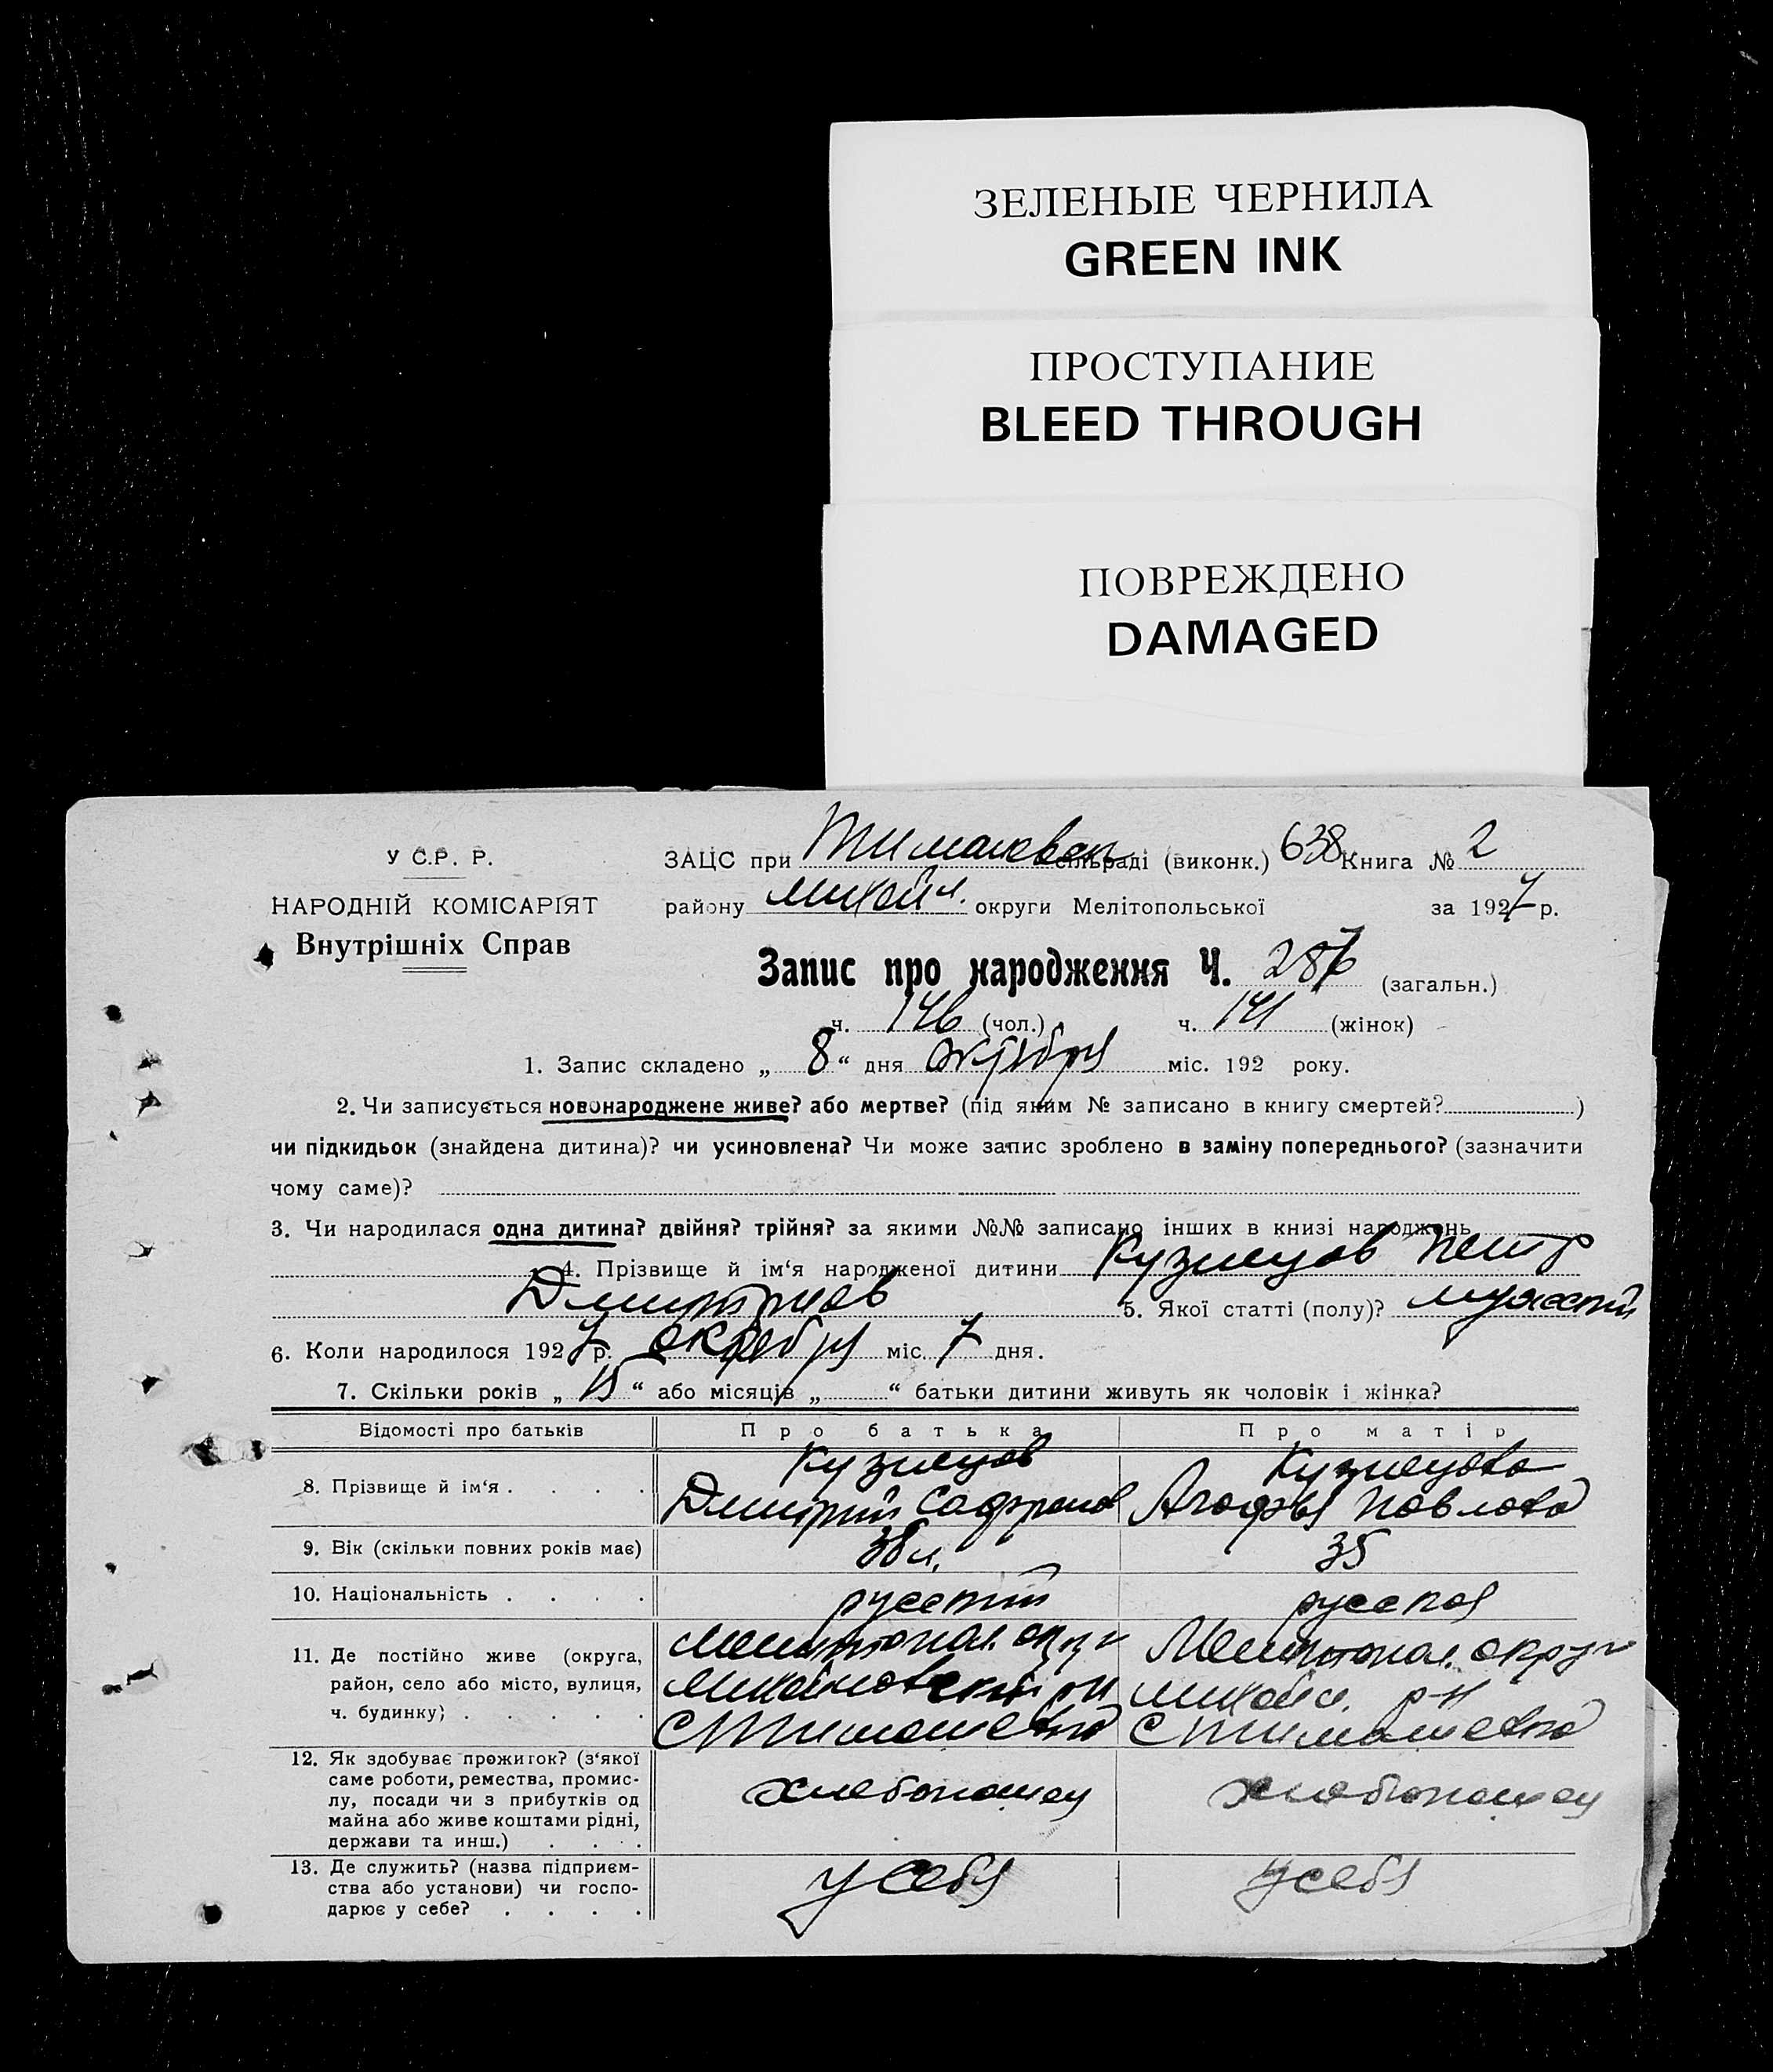 ЗЕЛЕНЫЕ ЧЕРНИЛА
GREEN INK
ПРОСТУПАНИЕ
BLEED THROUGH
ПОВРЕЖДЕНО
DAMAGED
У С.Р. Р.
НАРОДНІЙ КОМІСАРІЯТ
Внутрішніх Справ
ЗАЦС при Тимашевск сільраді (виконк.) 638 Книга № 2
району Михайл. округи Мелітопольської за 1927 р.
Запис про народження Ч. 287 (загальн.)
ч. 146 (чол.) ч. 141 (жінок)
1. Запис складено „ 8 “ дня октября міс. 192 року.
2. Чи записується новонароджене живе? або мертве? (під яким № записано в книгу смертей? )
чи підкидьок (знайдена дитина)? чи усиновлена? Чи може запис зроблено в заміну попереднього? (зазначити
чому саме)?
3. Чи народилася одна дитина? двійня? трійня? за якими №№ записано інших в книзі народжень
4. Прізвище й ім‘я народженої дитини Кузнецов Петр
Дмитриев 5. Якої статті (полу)? мужской
6. Коли народилося 1927 р. октября міс. 7 дня.
7. Скільки років „ 15 “ або місяців „ “ батьки дитини живуть як чоловік і жінка?
Відомості про батьків Про батька Про матір
8. Прізвище й ім‘я . . . . Кузнецов Кузнецова
Дмитрий Сафронов Агафья Павлова
9. Вік (скільки повних років має) 38 л. 35
10. Національність . . . . русский русская
11. Де постійно живе (округа, район, село або місто, вулиця, ч. будинку) . . . . .
Мелитопол. окру Мелитопол. окру
Михайловский р-н Михайл. р-н
С Тимашевка С Тимашевка
12. Як здобуває прожиток? (з‘якої
саме роботи, ремества, промис-
лу, посади чи з прибутків од
майна або живе коштами рідні,
держави та инш.) . . . .
хлебопашец хлебопашец
13. Де служить? (назва підприєм-
ства або установи) чи госпо-
дарює у себе? . . . .
у себя у себя